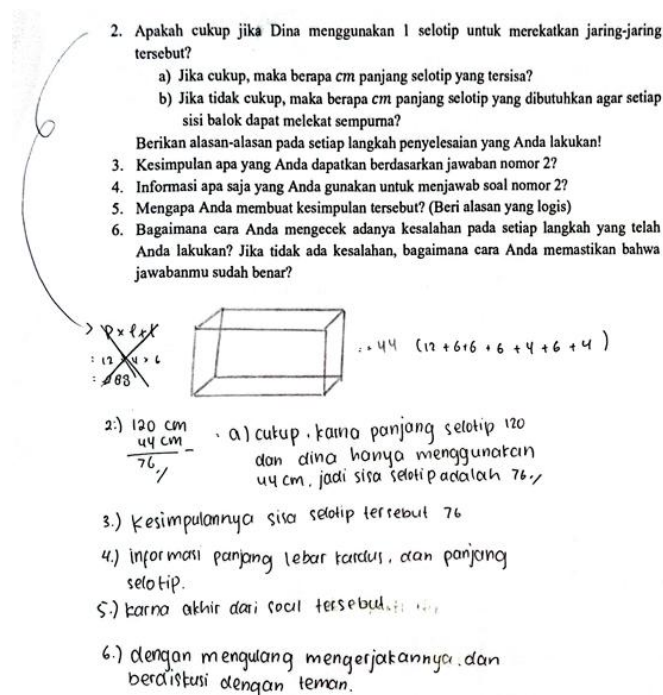 2. Apakah cukup jika Dina menggunakan 1 selotip untuk merekatkan jaring-jaring
tersebut?
a) Jika cukup, maka berapa cm panjang selotip yang tersisa?
b) Jika tidak cukup, maka berapa cm panjang selotip yang dibutuhkan agar setiap
sisi balok dapat melekat sempurna?
Berikan alasan-alasan pada setiap langkah penyelesaian yang Anda lakukan!
3. Kesimpulan apa yang Anda dapatkan berdasarkan jawaban nomor 2?
4. Informasi apa saja yang Anda gunakan untuk menjawab soal nomor 2?
5. Mengapa Anda membuat kesimpulan tersebut? (Beri alasan yang logis)
6. Bagaimana cara Anda mengecek adanya kesalahan pada setiap langkah yang telah
Anda lakukan? Jika tidak ada kesalahan, bagaimana cara Anda memastikan bahwa
jawabanmu sudah benar?
P x l x
: 12 4 x 6
: 44 (12 + 6 + 6 + 6 + 4 + 6 + 4)
2.) 120 cm
44 cm -
76 //
a) cukup, karna panjang selotip 120
dan dina hanya menggunakan
44 cm, jadi sisa selotip adalah 76 //
3.) Kesimpulannya sisa selotip tersebut 76
4.) informasi panjang lebar kardus, dan panjang
selotip.
5.) karna akhir dari soal tersebut
6.) dengan mengulang mengerjakannya, dan
berdiskusi dengan teman.